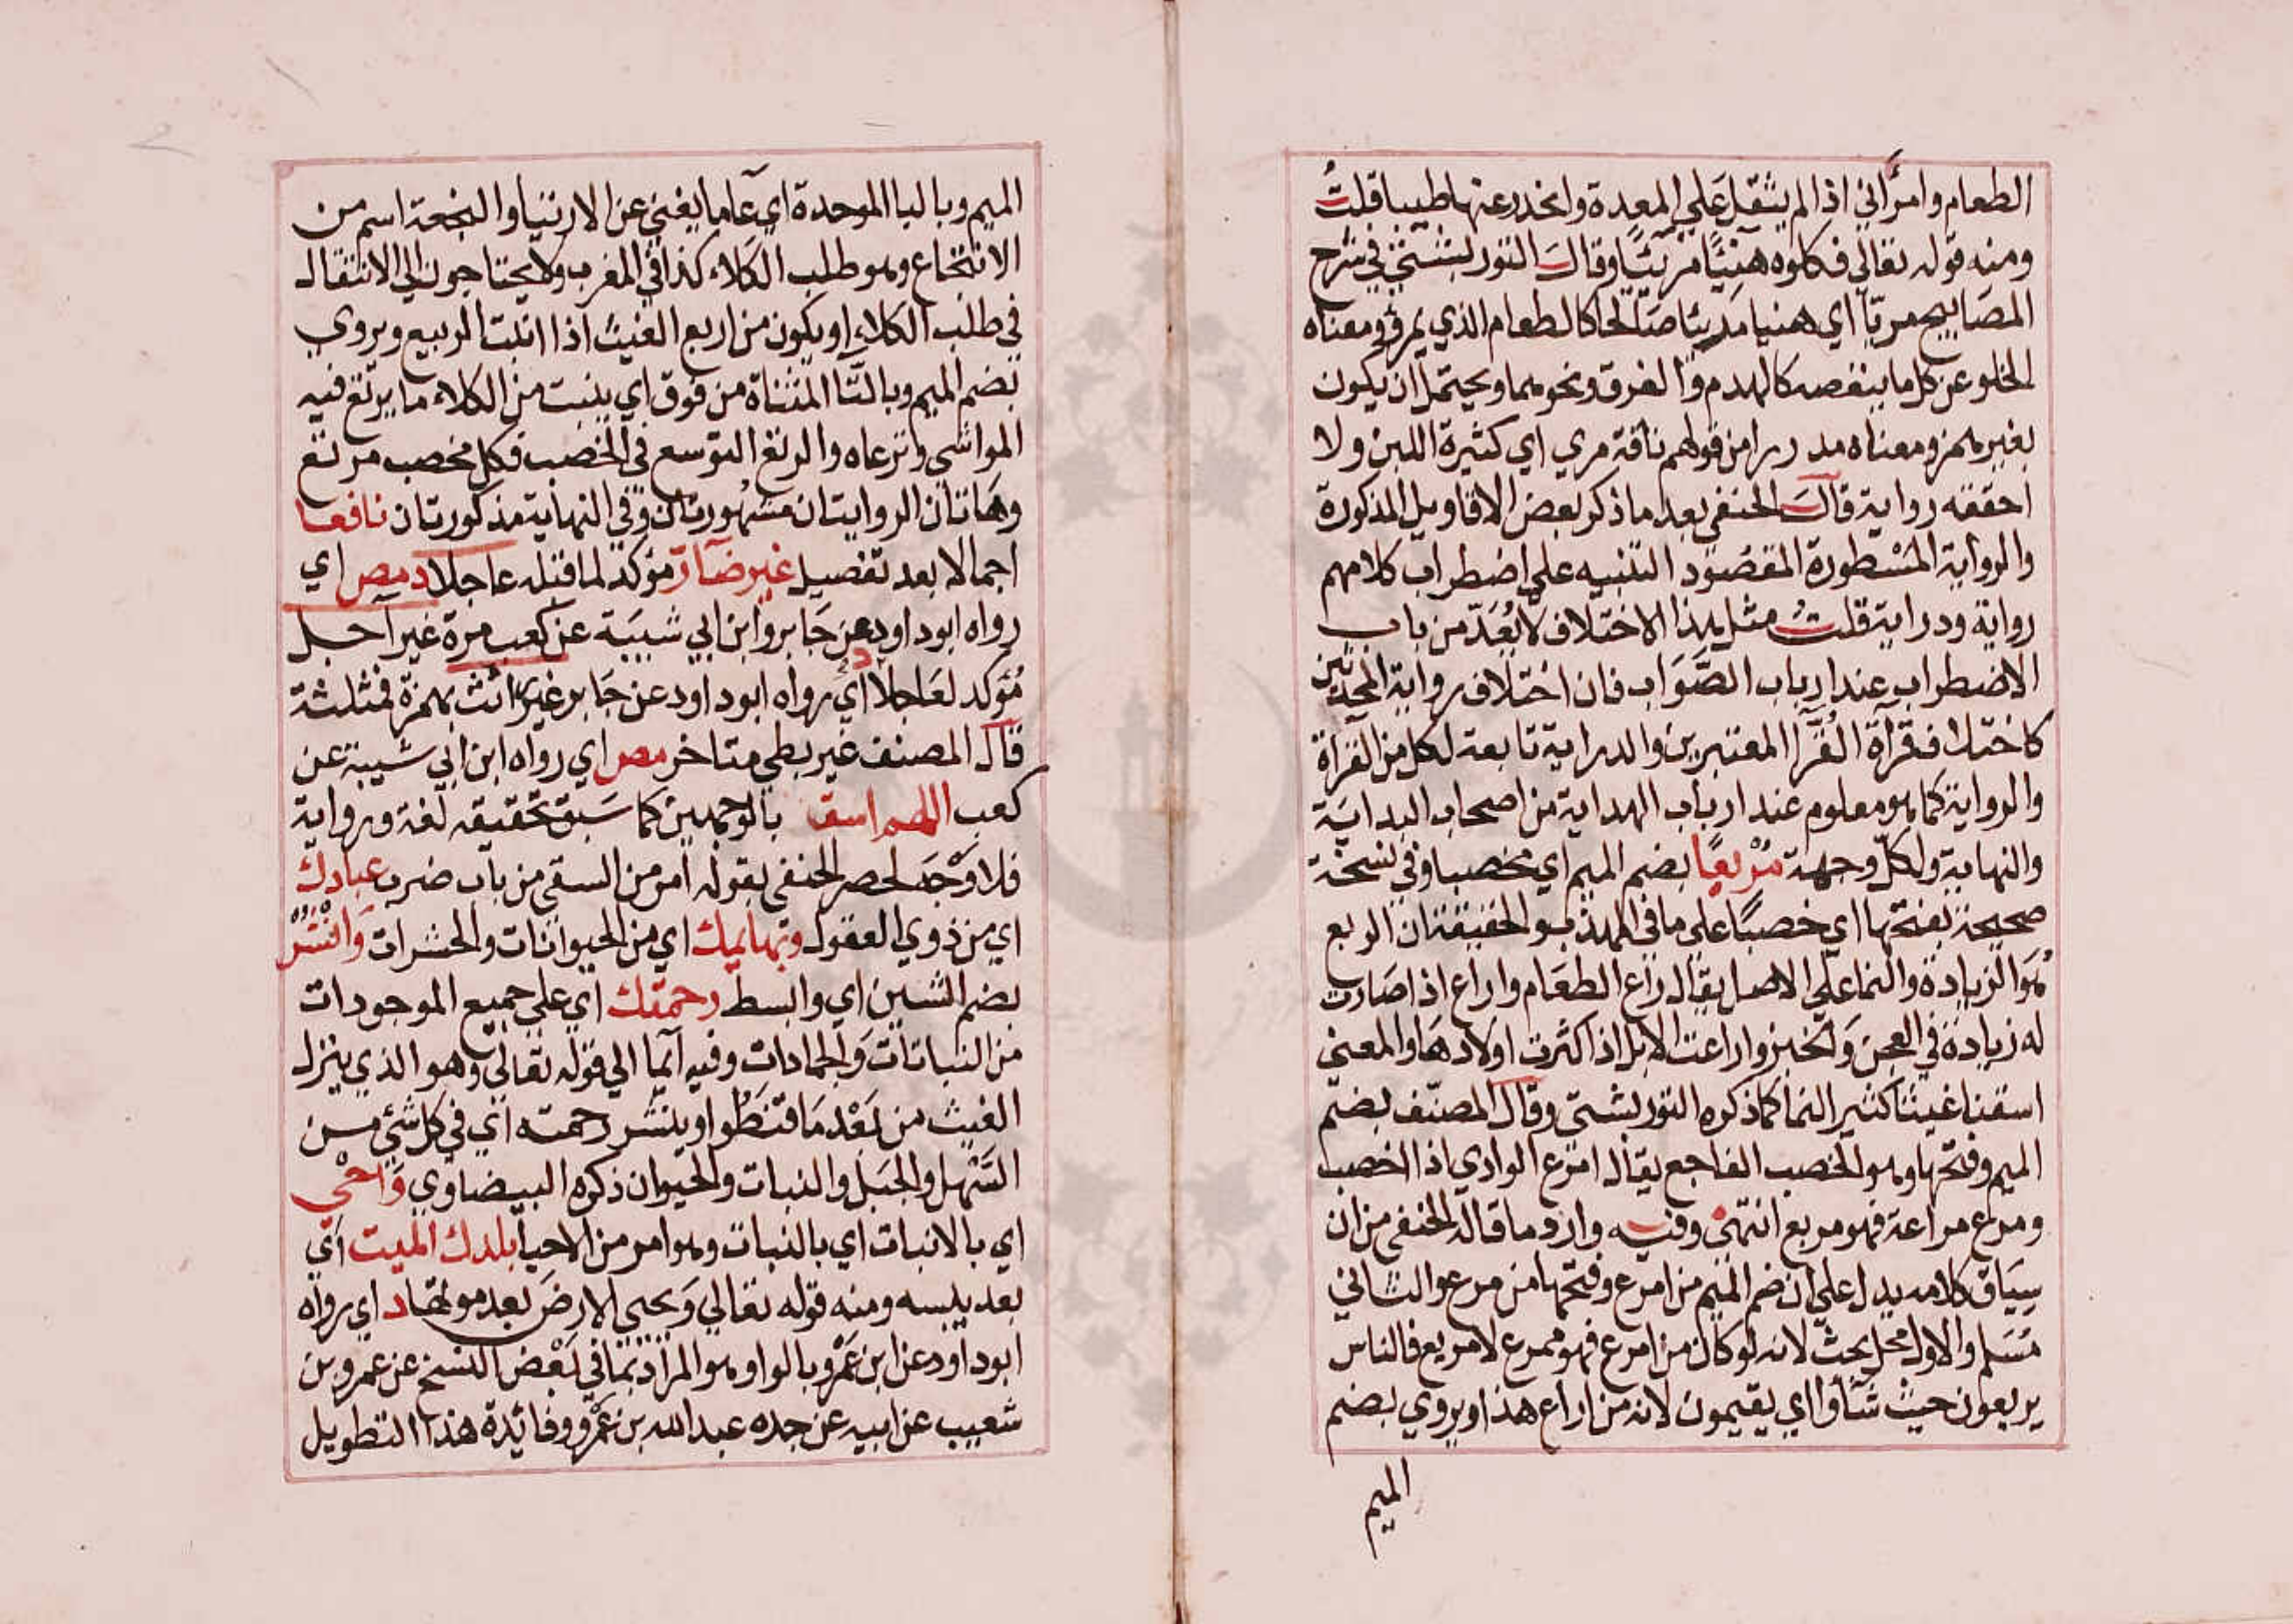 الطعام وامرأني اذا لم يثقل علي المعدة وانحدر عنها طيبا قلت
ومنه قوله تعالي فكلوه هنيئا مريئا وقال التوربشتي في شرح
المصابيح مريا اي هنيا مريئا صالحا كالطعام الذي يمرؤ ومعناه
الخلو عن كل ما ينغصه كالهدم والغرق ونحوهما ويحتمل ان يكون
بغير همز ومعناه مدرارا من قولهم ناقة مري اي كثيرة اللبن ولا
احققه رواية قال الحنفي بعد ما ذكر بعض الاقاويل المذكورة
والرواية المسطورة المقصود التنبيه علي اضطراب كلامهم
رواية ودراية قلت مثل هذا الاختلاف لا يعد من باب
الاضطراب عند ارباب الصواب فان اختلاف رواية المحدثين
كاختلاف قرآة القرآ المعتبرين والدراية تابعة لكل من القرآة
والرواية كما هو معلوم عند ارباب الهداية من اصحاب البداية
والنهاية ولكل وجهة مريعا بضم الميم اي مخصبا وفي نسخة
صحيحة بفتحها اي خصبا علي ما في المهذب والحقيقة ان الريع
هو الزيادة والنما علي الاصل يقال راع الطعام واراع اذا صارت
له زيادة في العجن والخبز واراعت الابل اذا كثرت اولادها والمعني
اسقنا غيثا كثير النما كما ذكره التوربشتي وقال المصنف بضم
الميم وفتحها وهو الخصب الفاجع يقال امرع الوادي اذا اخصب
ومرع مراعة فهو مريع انتهي وفيه وارد ما قاله الحنفي من ان
سياق كلامه يدل علي ان ضم الميم من امرع وفتحها من مرع والثاني
مسلم والاول محل بحث لانه لو كان من امرع فهو ممرع لا مريع فالناس
يربعون حيث شأوا اي يقيمون لانه من اراع هذا ويروي بضم
الميم
الميم وبالبا الموحدة اي عاما يغني عن الارتياد والنجعة اسم من
الانتجاع وهو طلب الكلاء كذا في المغرب ولا يحتاجون الي الانتقال
في طلب الكلاء او يكون من اربع الغيث اذا انبت الربيع ويروي
بضم الميم وبالتا المثناة من فوق اي ينبت من الكلاء ما يرتع فيه
المواشي وترعاه والرتع التوسع في الخصب فكل مخصب مرتع
وهاتان الروايتان مشهورتان وفي النهاية مذكورتان نافعا
اجمالا بعد تفصيل غير ضآر مؤكد لما قبله عاجلا د مص اي
رواه ابو داود عن جابر وابن ابي شيبة عن كعب مرة غير اجل
د
مؤكد لعاجلا اي رواه ابو داود عن جابر غير رائث بهمزة فمثلثة
قال المصنف غير بطي متاخر مص اي رواه ابن ابي شيبة عن
كعب اللهم اسق بالوجهين كما سبق تحقيقه لغة ورواية
فلا وجه لحصر الحنفي بقوله امر من السقي من باب ضرب عبادك
اي من ذوي العقول وبهايمك اي من الحيوانات والحشرات وانشر
بضم الشين اي وابسط رحمتك اي علي جميع الموجودات
من النباتات والجمادات وفيه آيما الي قوله تعالي وهو الذي ينزل
الغيث من بعد ما قنطوا وينشر رحمته اي في كل شئ من
السهل والجبل والنبات والحيوان ذكره البيضاوي واحي
اي بالانبات اي بالنبات وهو امر من الاحيا بلدك الميت اي
بعد يبسه ومنه قوله تعالي ويحيي الارض بعد موتها د اي رواه
ابو داود عن ابن عمرو بالواو وهو المراد بما في بعض النسخ عن عمرو بن
شعيب عن ابيه عن جده عبد الله بن عمرو وفائدة هذا التطويل